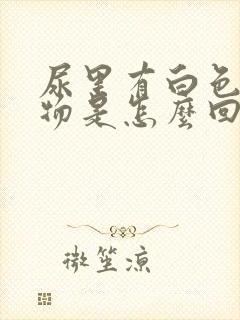 尿里有白色
物是怎麼回
微笙凉